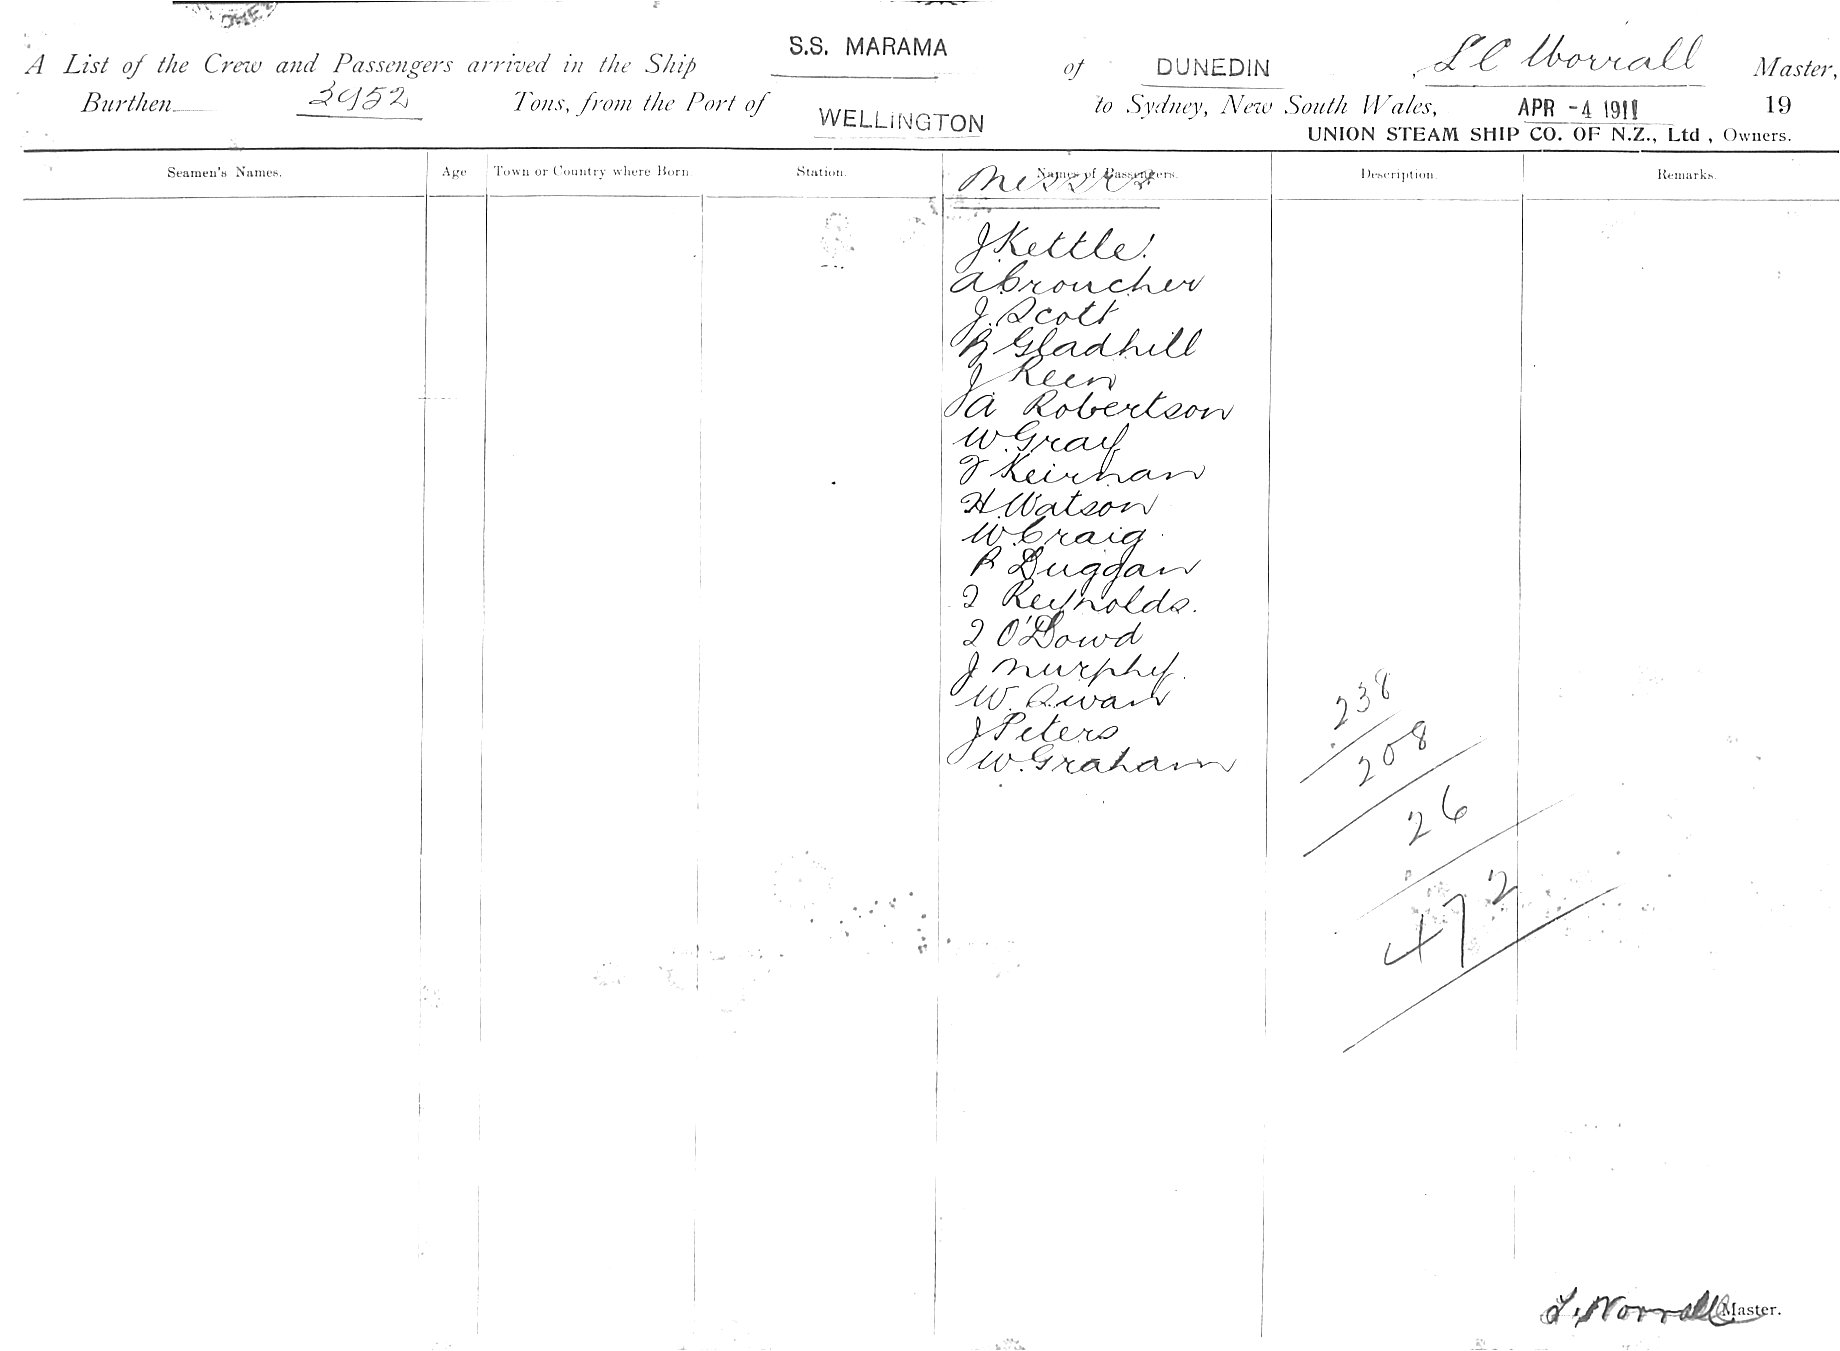 A List of the Crew and Passengers arrived in the Ship S.S. MARAMA of DUNEDIN, L C Worrall Master,
Burthen 3952 Tons, from the Port of WELLINGTON to Sydney, New South Wales, APR -4 1911 19
UNION STEAM SHIP CO. OF N.Z., Ltd, Owners.
Seamen's Names. Age Town or Country where Born Station. Names of Passengers. Description. Remarks.
Messrs
J Kettle
A Croucher
J. Scott
R Gladhill
J Keen
A Robertson
W. Gray
T Keirnan
H. Watson
W. Craig
P Duggan
T Reynolds.
T O'Dowd
J Murphy.
W. Swan
J Peters
W. Graham
238
208
26
472
L. Worrall Master.